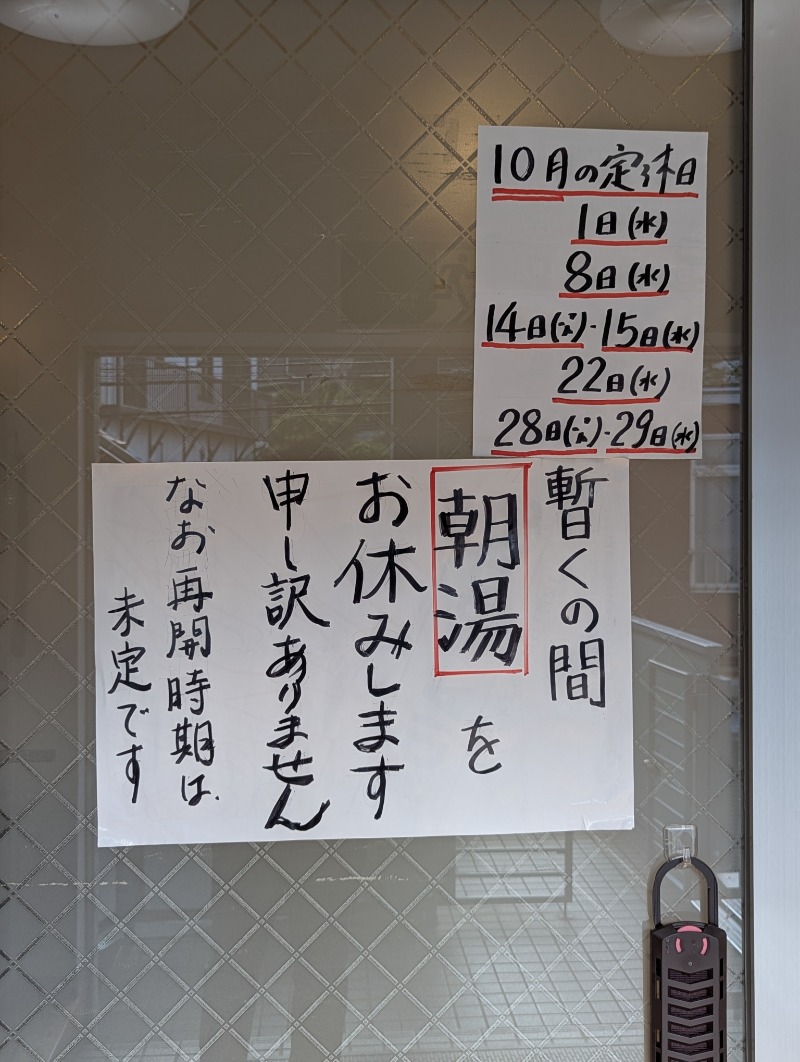 10月の定休日
1日(水)
8日(水)
14日(火)・15日(水)
22日(水)
28日(火)・29日(水)
暫くの間
朝湯を
お休みします
申し訳ありません
なお再開時期は、
未定です